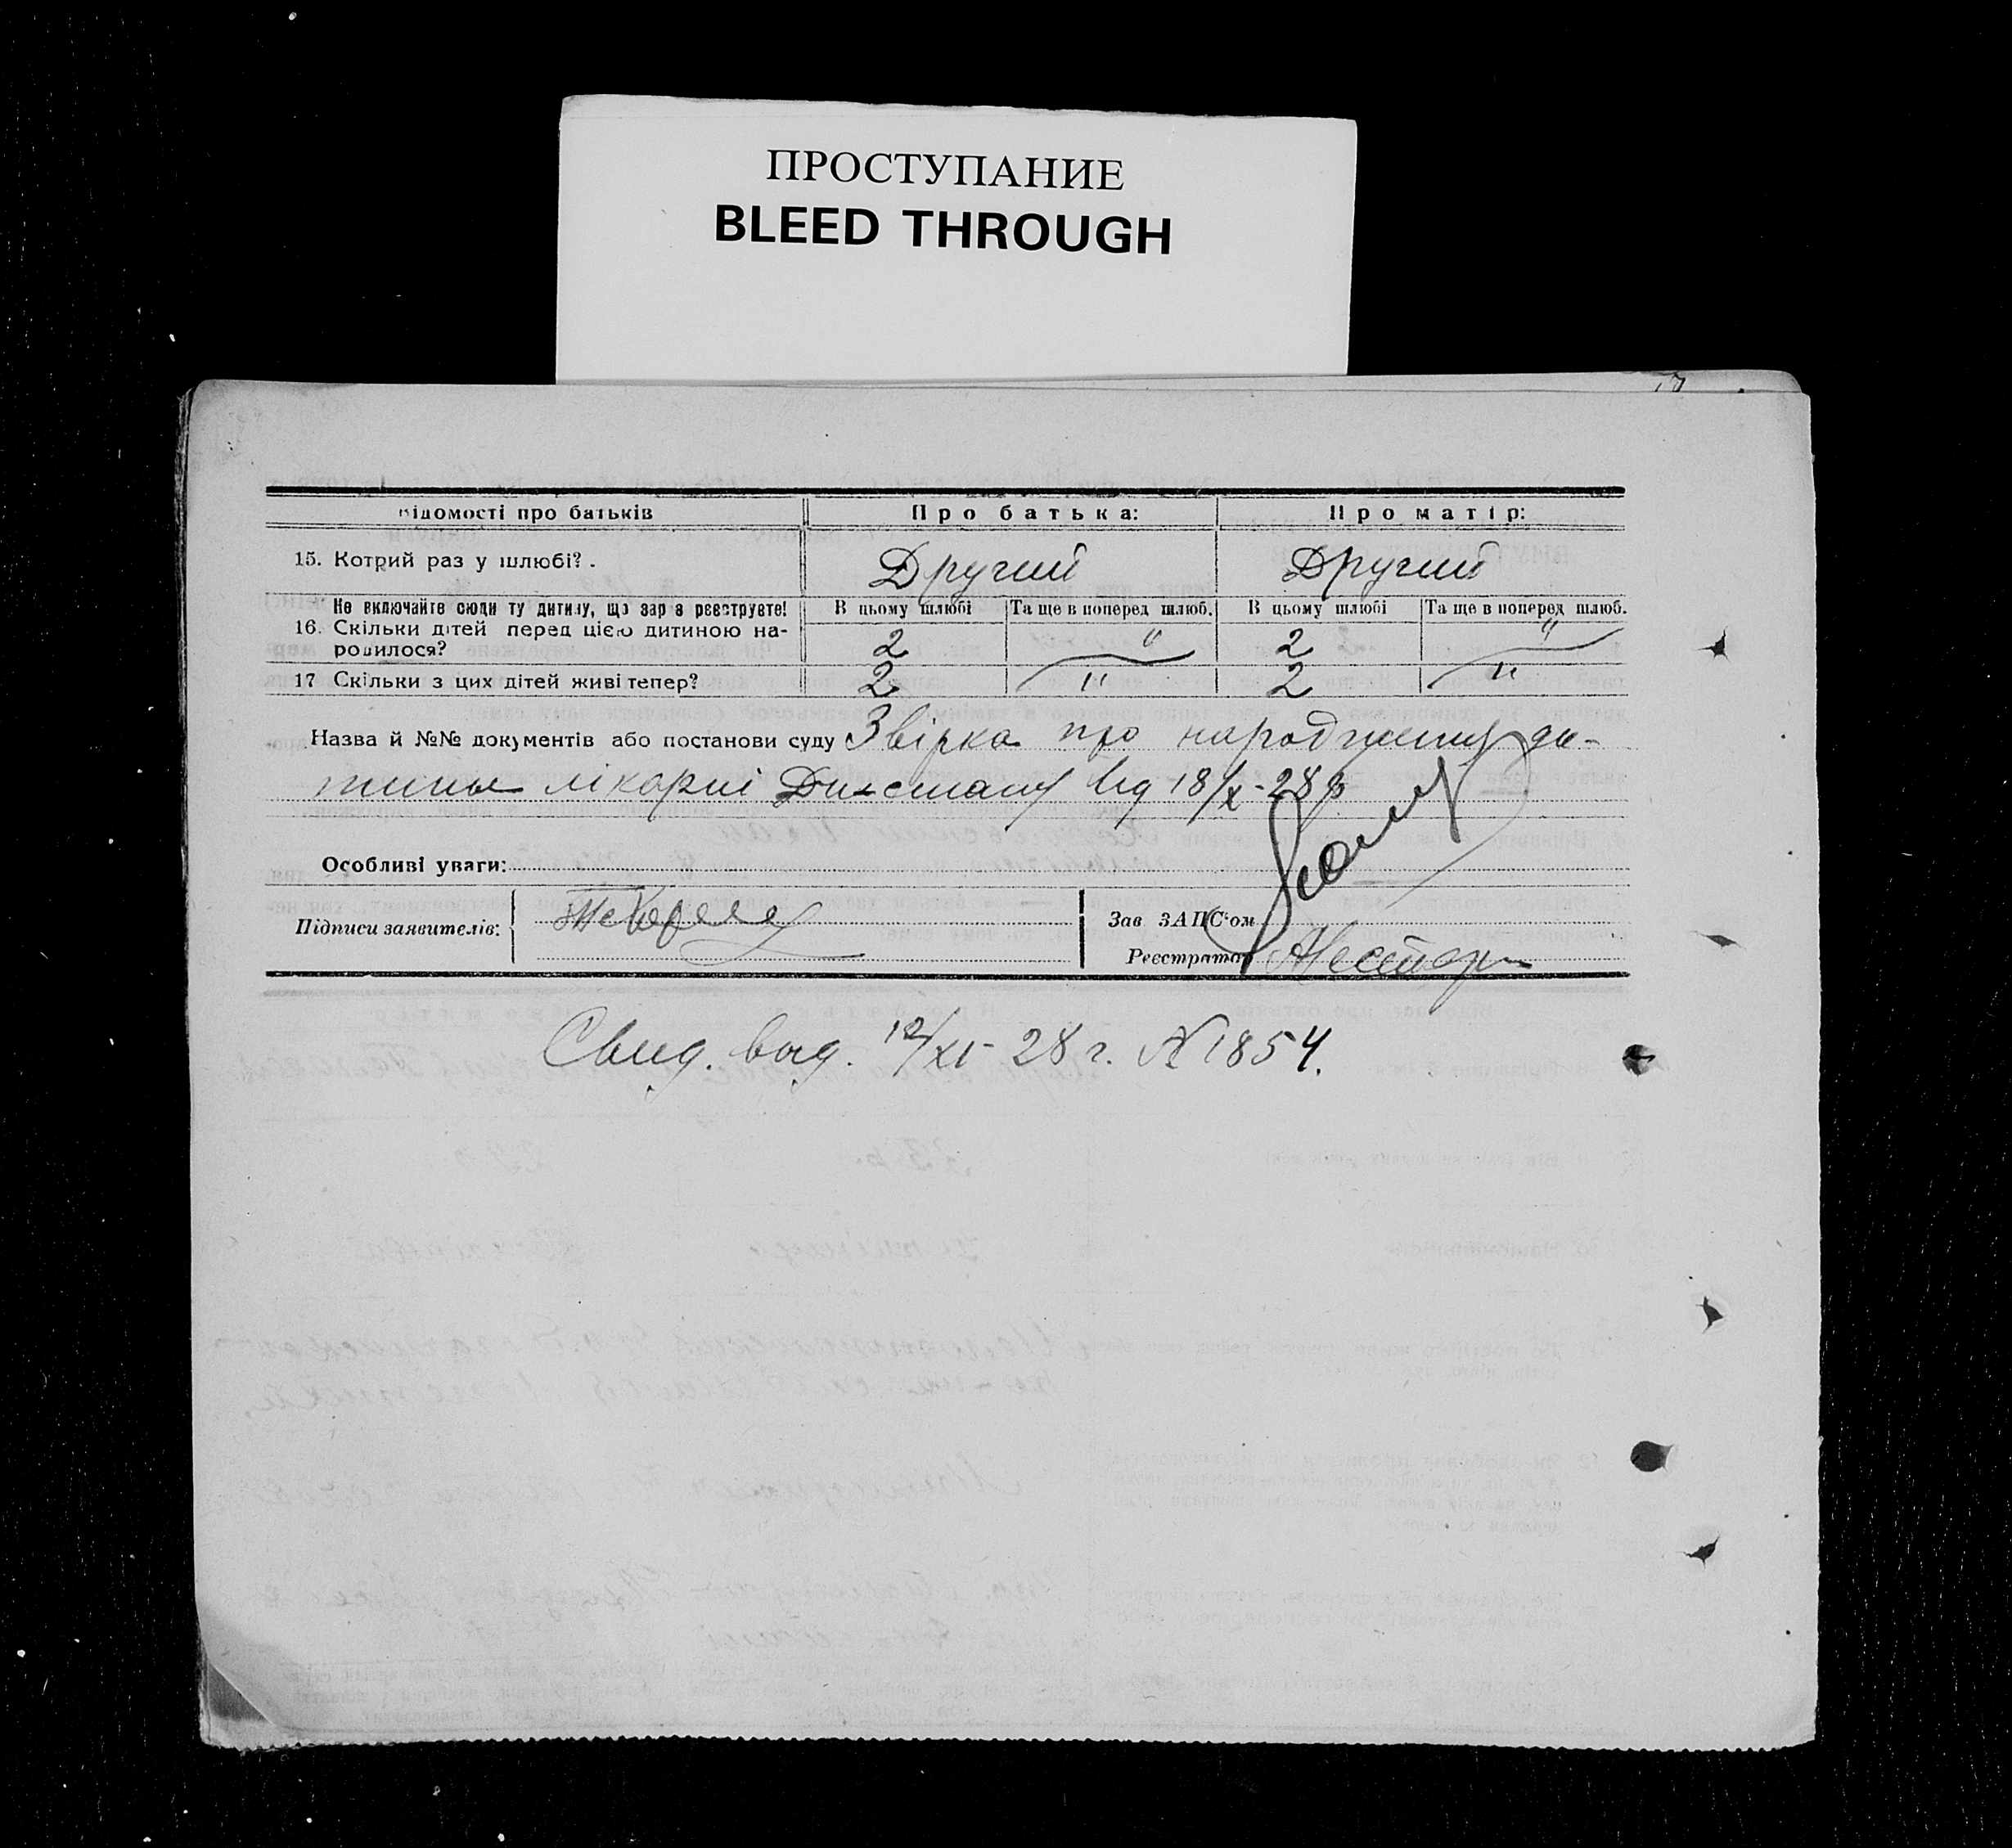 ПРОСТУПАНИЕ
BLEED THROUGH
Відомості про батьків Про батька: Про матір:
15. Котрий раз у шлюбі? Другий Другий
Не включайте сюди ту дитину, що зараз реєструєте! В цьому шлюбі Та ще в поперед шлюб. В цьому шлюбі Та ще в поперед шлюб.
16. Скільки дітей перед цією дитиною на-
родилося? 2 " 2 "
17 Скільки з цих дітей живі тепер? 2 " 2 "
Назва й №№ документів або постанови суду Звірка про народження ди-
тини лікарні від 18/X-28р
Особливі уваги:
Підписи заявителів: Зав ЗАГС'ом
Реєстратор
Свид. выд. 12/XI-28 г. N1854.